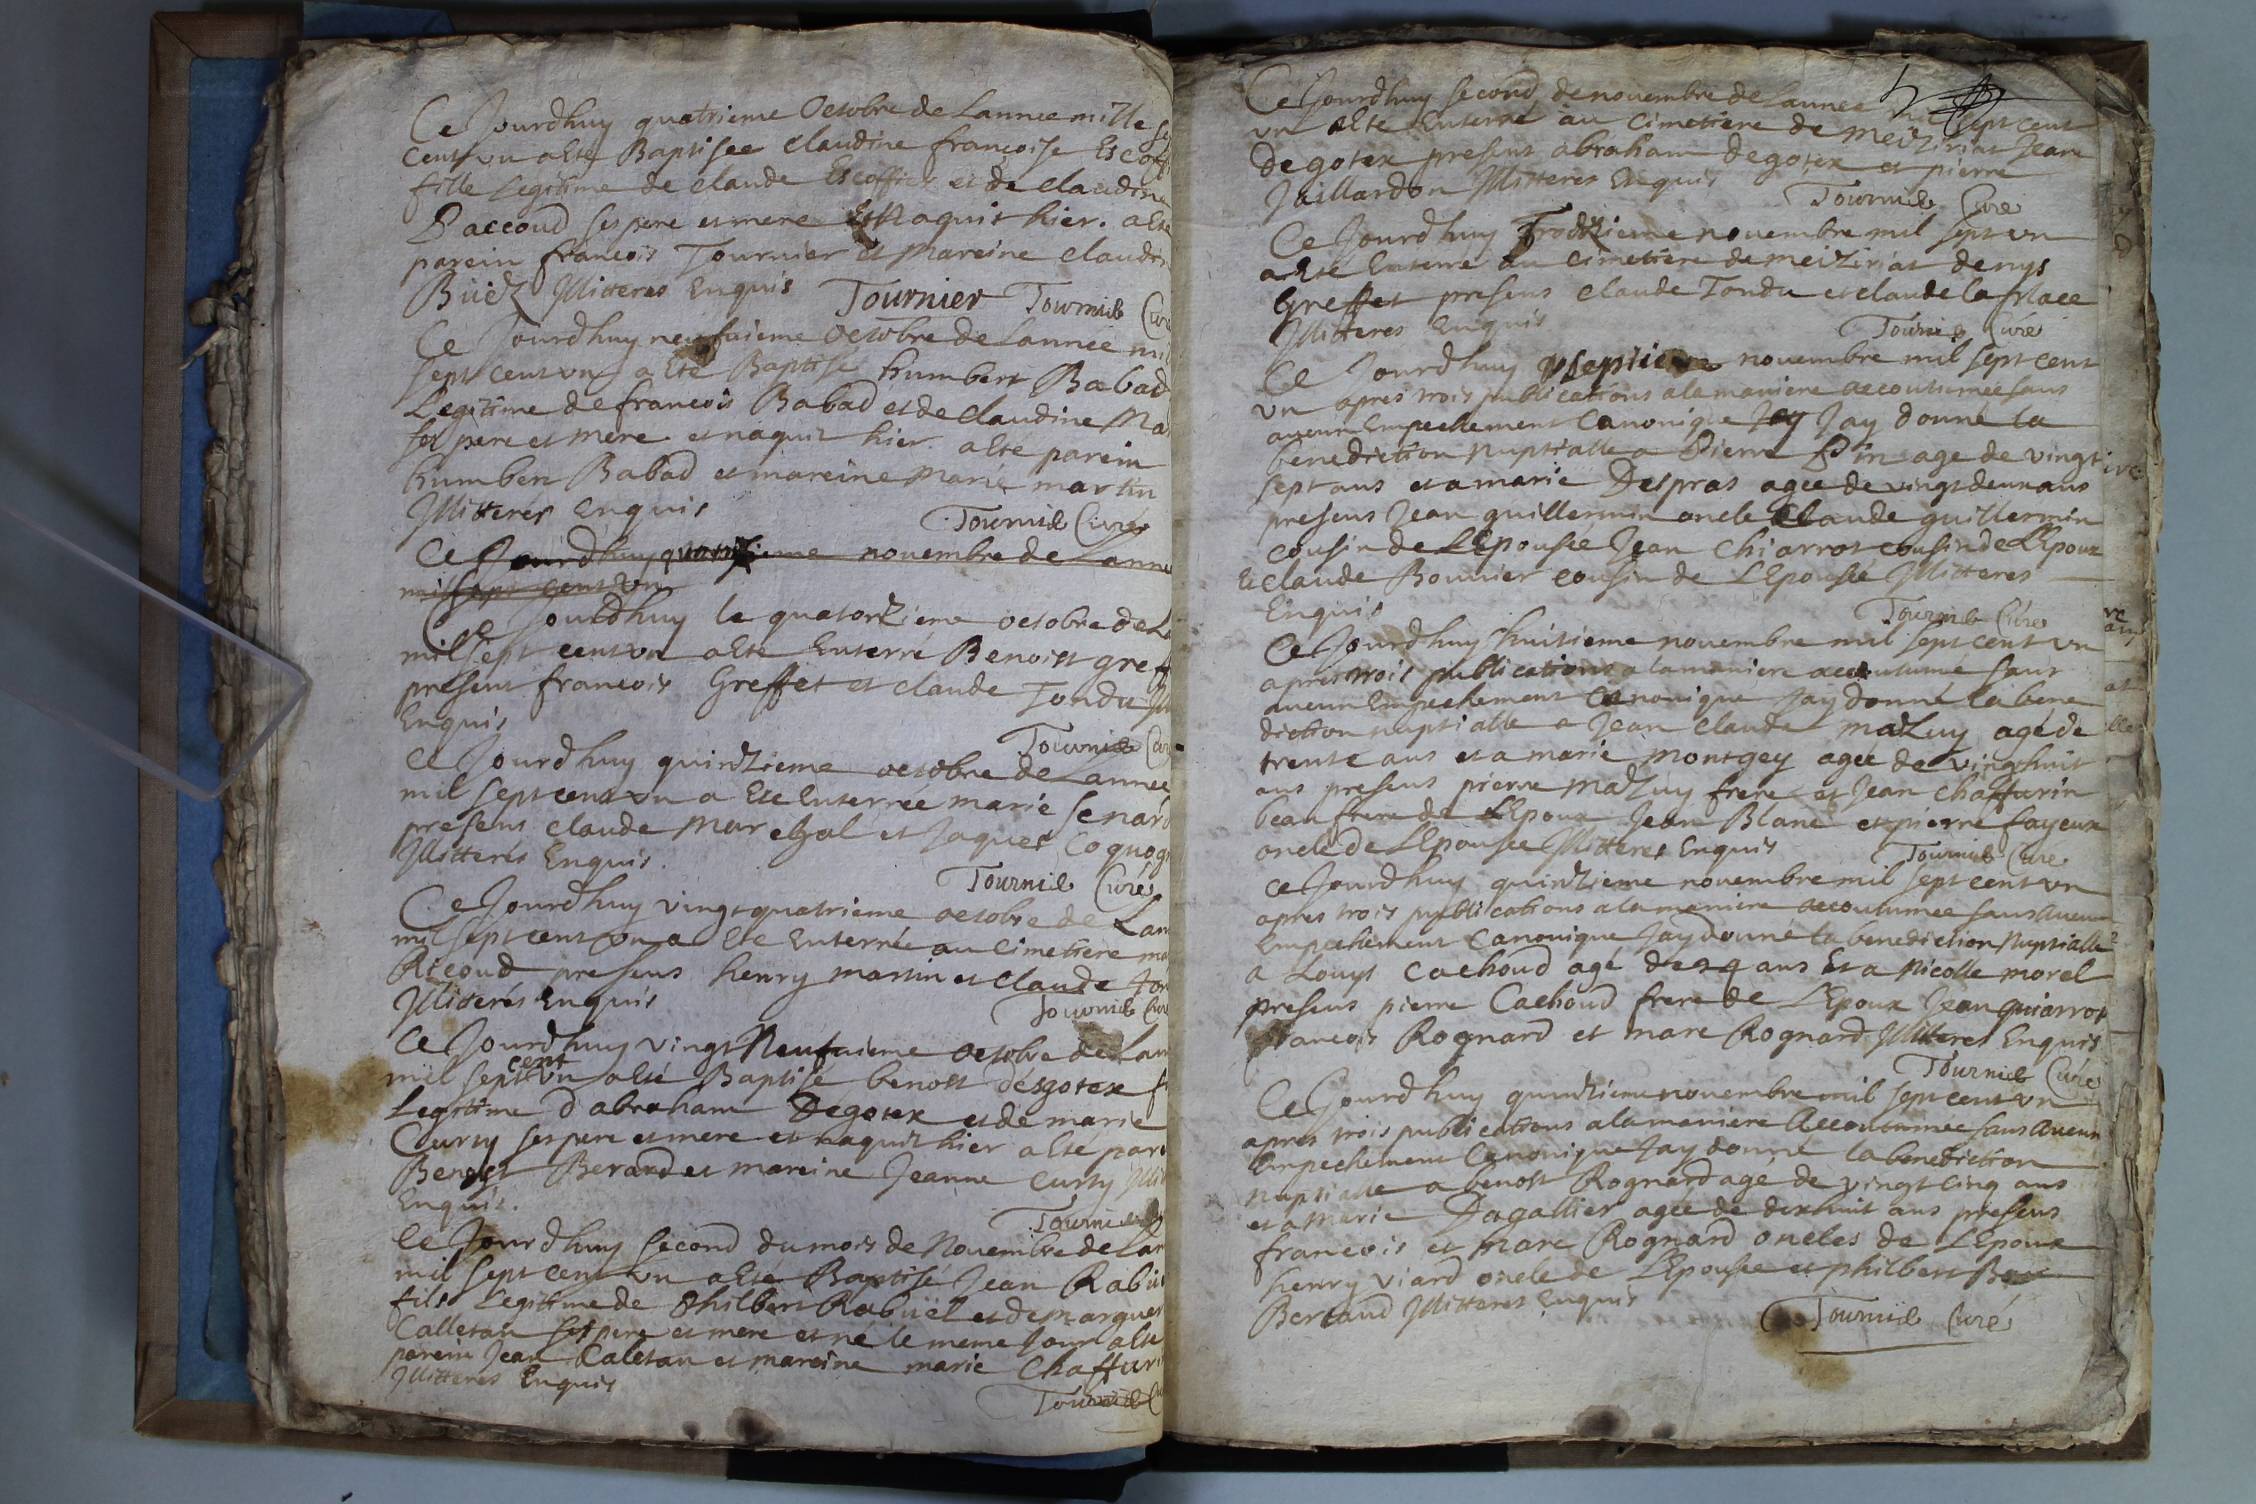 Ce Jourdhuy quatrieme Octobre de Lannee mille se
cent un a Eté Baptisee claudine françoise Escoffi
fille Legitime de claude Escoffier et de claudine
Paccoud ses pere et mere Et Naquit hier. a Eté
parein francois Tournier et Mareine claudin
Büedz Illitteres Enquis Tournier Tournier Curé
Ce Jourdhuy neufuieme octobre de Lannee mil
sept cent un a Eté Baptise humbert Babad
Legitime de francois Babad et de claudine Ma
ses pere et mere et naquit hier a Eté parein
humbert Babad et mareine Marie martin
Illitteres Enquis
Tournier Curé
Ce Jourdhuy novembre de Lannee
mil sept cent un
Ce Jourdhuy le quatorzieme octobre de La
mil sept cent un a Eté Enterré Benoist greff
present francois Greffet et claude Tondu Ill
Enquis
Tournier Cur
Ce Jourdhuy quindzieme octobre de Lannee
mil sept cent un a Ete Enterrée marie Senard
presens claude Marechal et Jaques Coquog
Illitterés Enquis.
Tournier Curé
Ce Jourdhuy vingt quatrieme octobre de Lan
mil sept cent un a Ete Enterrée au cimetiere ma
Ricoud presens henry martin et claude ton
Illitterés Enquis
Tournier Cur
Ce Jourdhuy vingt Neufuieme octobre de Lan
cent
mil sept un a Eté Baptisé benoit désgotex fi
Legitime d'abraham Degotex et de marie
Curty ses pere et mere et naquit hier a Eté pare
Benoist Berard et mareine Jeanne curty Illit
Enquis.
Tournier
Ce Jourdhuy second du mois de Novembre de Lan
mil sept cent un a Eté Baptisé Jean Rabüe
fils Legitime de Philbert Rabüel et de marguer
Calletan ses pere et mere et né le meme Jour a Eté
parein Jean Caletan et mareine marie Chaffuri
Illitteres Enquis
Tournier Cu
Ce Jourdhuy second de novembre de Lannee mil sept cent
un a Eté Enterré au cimetiere de meiziriat Jean
degotex present abraham degotex et pierre
Jaillardon Illitteres Enquis
Tournier Curé
Ce Jourdhuy novembre mil sept un
a Eté Enterre au cimetiere de meiziriat denys
Greffet presens claude Tondu et claude la place
Illitteres Enquis
Tournier Curé
Ce Jourdhuy septieme novembre mil sept cent
un apres trois publications a la maniere accoutumee sans
aucun Empechement Canonique Jay Jay donné la
benediction Nuptialle a Pierre Pin age de vingt
sept ans et a marie Despras agée de vingt deux ans
presens Jean guillermin oncle claude guillermin
cousin de LEpousée Jean Chiarrot cousin de LEpoux
Et claude Bouvier cousin de LEpousée Illitteres
Enquis
Tournier Curé
Ce Jourdhuy huitieme novembre mil sept cent un
apres trois publications a la maniere accoutume sans
aucun Empechement Canonique Jay donné la bene
diction nuptialle a Jean claude mazuy agé de
trente ans et a marie Montgey agée de vingthuit
ans presens pierre Mazuy frere et Jean Chaffurin
beau frere de LEpoux Jean Blanc et pierre fayeux
oncle de LEpousee Illitteres Enquis
Tournier Curé
Ce Jourdhuy quindzieme novembre mil sept cent un
apres trois publications a la maniere accoutumee sans Aucun
Empechement Canonique Jay donné la benediction Nuptialle
a Louys Cachoud agé de 24 ans Et a Nicolle morel
presens pierre Cachoud frere de LEpoux Jean quiarrot
francois Rognard et marc Rognard Illitteres Enquis
Tournier Curé
Ce Jourdhuy quindzieme novembre mil sept cent un
apres trois publications a la maniere Accoutumee sans Aucun
Empechement Canonique Jay donné la benediction
Nuptialle a benoit Rognard agé de vingt cinq ans
et a Marie Dagallier agée de dixhuit ans presens
francois et marc Rognard oncles de LEpoux
henry viard oncle de LEpousee et philbert
Bertaud Illitteres Enquis
Tournier Curé